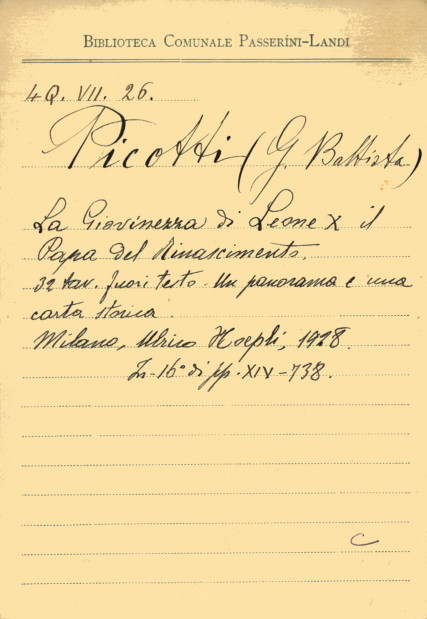 BIBLIOTECA COMUNALE PASSERINI-LANDI
4Q. VII. 26.
Picotti (G. Battista)
La Giovinezza di Leone X il
Papa del Rinascimento.
32 tav. fuori testo - Un panorama e una
carta storica.
Milano, Ulrico Hoepli, 1928.
In-16° di pp. XIV-738.
C